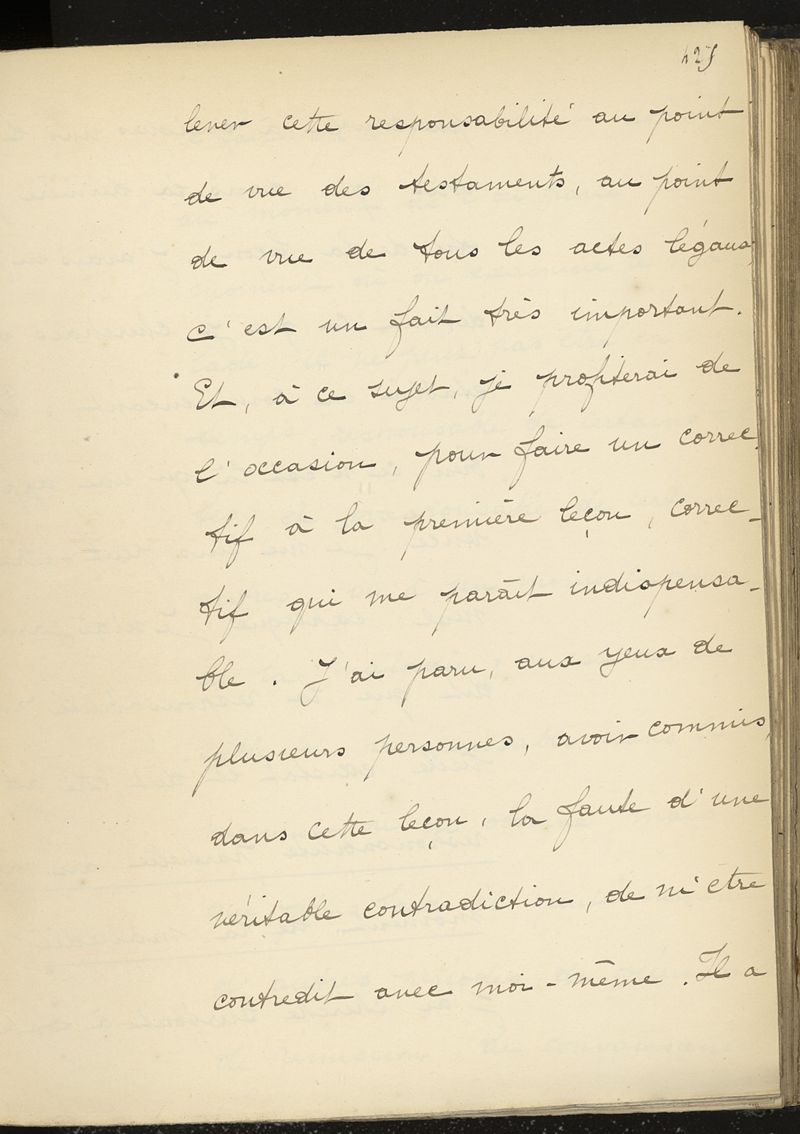 425
lever cette responsabilité au point
de vue des testaments, au point
de vue de tous les actes légaux,
c'est un fait très important.
Et, à ce sujet, je profiterai de
l'occasion, pour faire un correc-
tif à la première leçon, correc-
tif qui me paraît indispensa-
ble. J'ai paru, aux yeux de
plusieurs personnes, avoir commis,
dans cette leçon, la faute d'une
véritable contradiction, de m'être
contredit avec moi-même. Il a